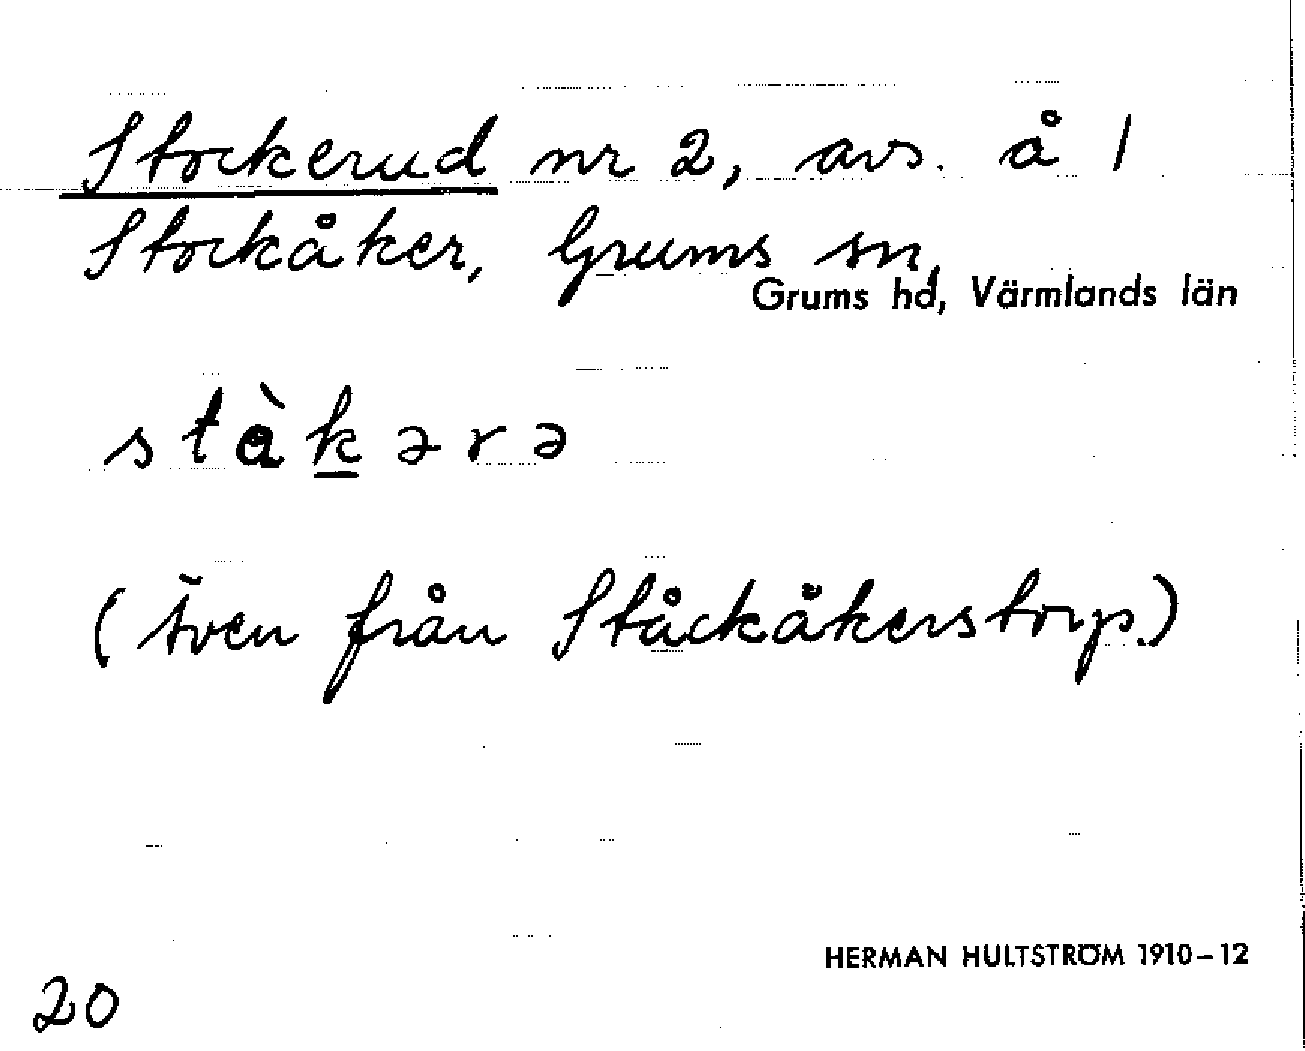 Stockerud nr 2, avs. å 1
Stockåker, Grums sn,
Grums hd, Värmlands län
stàkərə
(även från Ståckåkerstorp.)
HERMAN HULTSTRÖM 1910–12
20